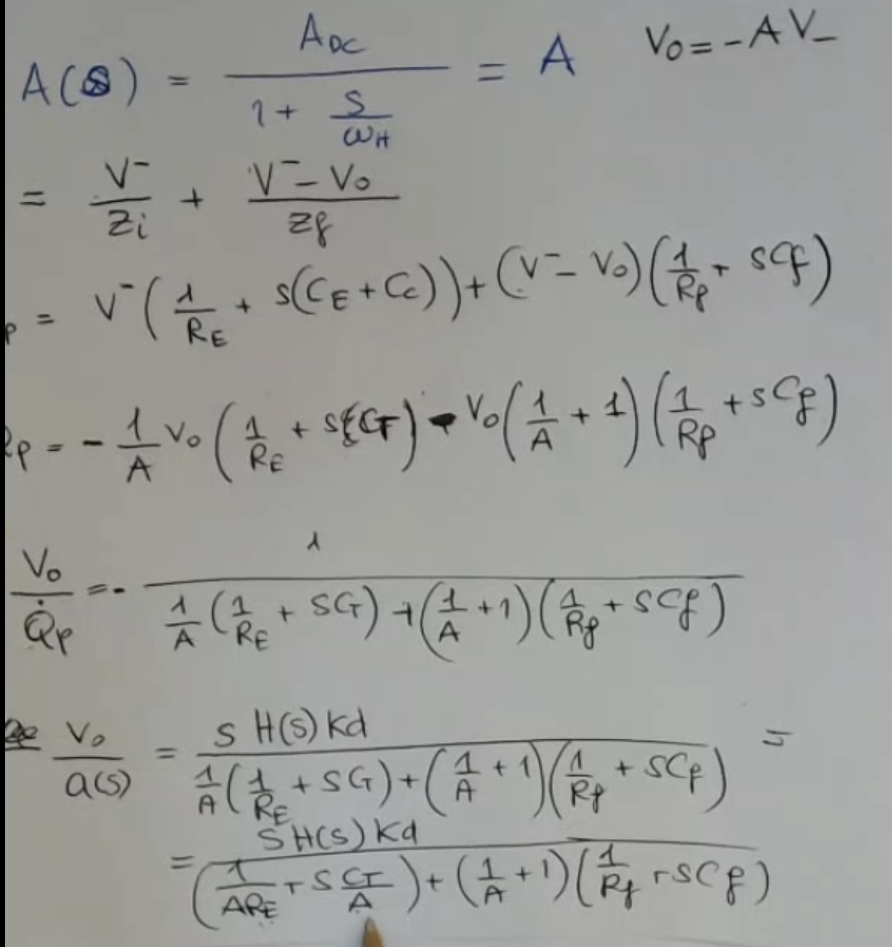 A(s) = A_DC / (1 + s/ω_H) = A    V_o = -A V_-
= V^-/Z_i + (V^- - V_o)/Z_f
p = V^- (1/R_E + s(C_E + C_c)) + (V^- - V_o)(1/R_f + sC_f)
Q_p = - 1/A V_o (1/R_E + s C_T) - V_o (1/A + 1)(1/R_f + sC_f)
V_o/Q̇_p = - 1 / (1/A (1/R_E + sC_T) + (1/A + 1)(1/R_f + sC_f))
V_o/a(s) = s H(s) Kd / (1/A (1/R_E + sC_T) + (1/A + 1)(1/R_f + sC_f)) =
= s H(s) Kd / ((1/(AR_E) + s C_T/A) + (1/A + 1)(1/R_f + sC_f))